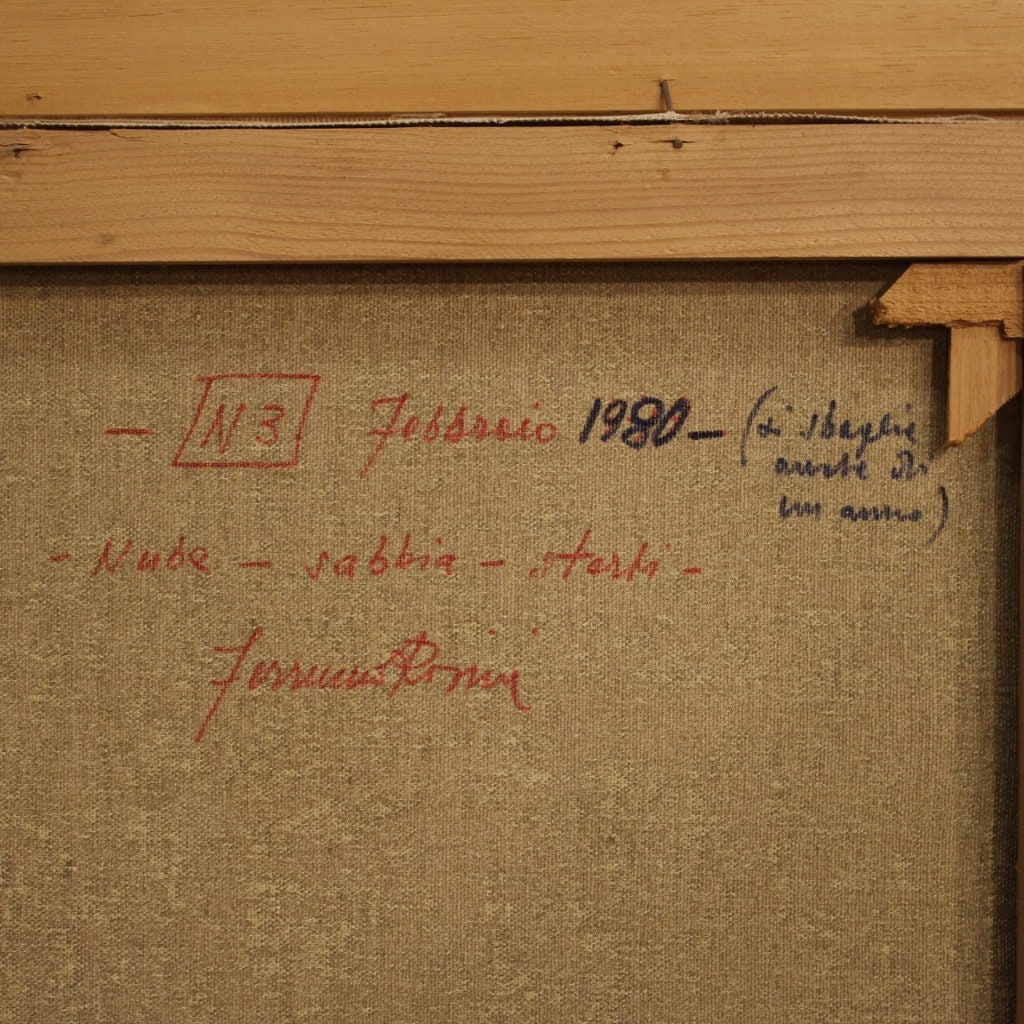 — N 3 Febbraio 1980 — (si sbaglia
anche di
un anno)
- Nude — sabbia — sterpi -
Ferruccio Rosini